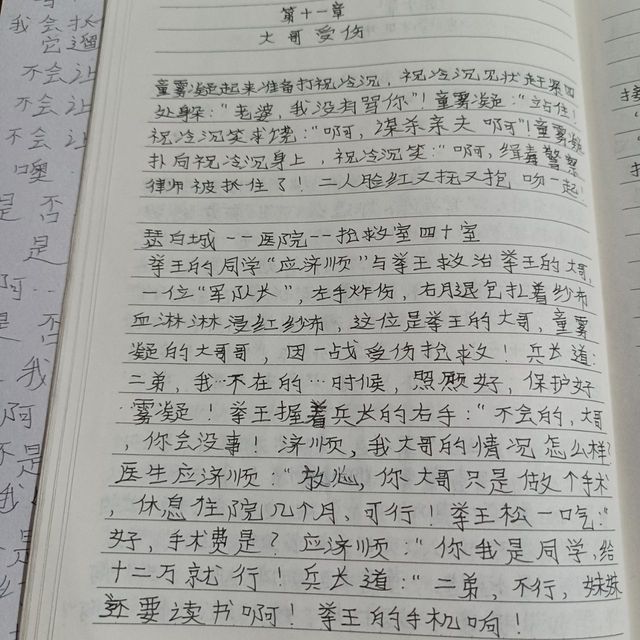 第十一章
大哥受伤
童雾凝起来准备打祝冷沉，祝冷沉见状赶紧四
处躲：“老婆，我没有骂你”！童雾凝：“站住！
祝冷沉笑求饶：“啊，谋杀亲夫啊”！童雾凝
扑向祝冷沉身上，祝冷沉笑：“啊，缉毒警察
律师被抓住了！二人脸红又抚又抱吻一起！
瑟白城--医院--抢救室四十室
拳王的同学“应济顺”与拳王救治拳王的大哥，
一位“军队长”，左手炸伤，右腿包扎着纱布
血淋淋浸红纱布，这位是拳王的大哥，童雾
凝的大哥哥，因一战受伤抢救！兵长道：
二弟，我…不在的…时候，照顾好，保护好
雾凝！拳王握着兵长的右手：“不会的，大哥
，你会没事！济顺，我大哥的情况怎么样？
医生应济顺：“放心，你大哥只是做个手术
，休息住院几个月，可行！拳王松一口气：“
好，手术费是？应济顺：“你我是同学，给
十二万就行！兵长道：“二弟，不行，妹妹
还要读书啊！拳王的手机响！
我会
不会让
不会让
不会让
噢
是 否
是
啊
是 否
我
啊
是
我